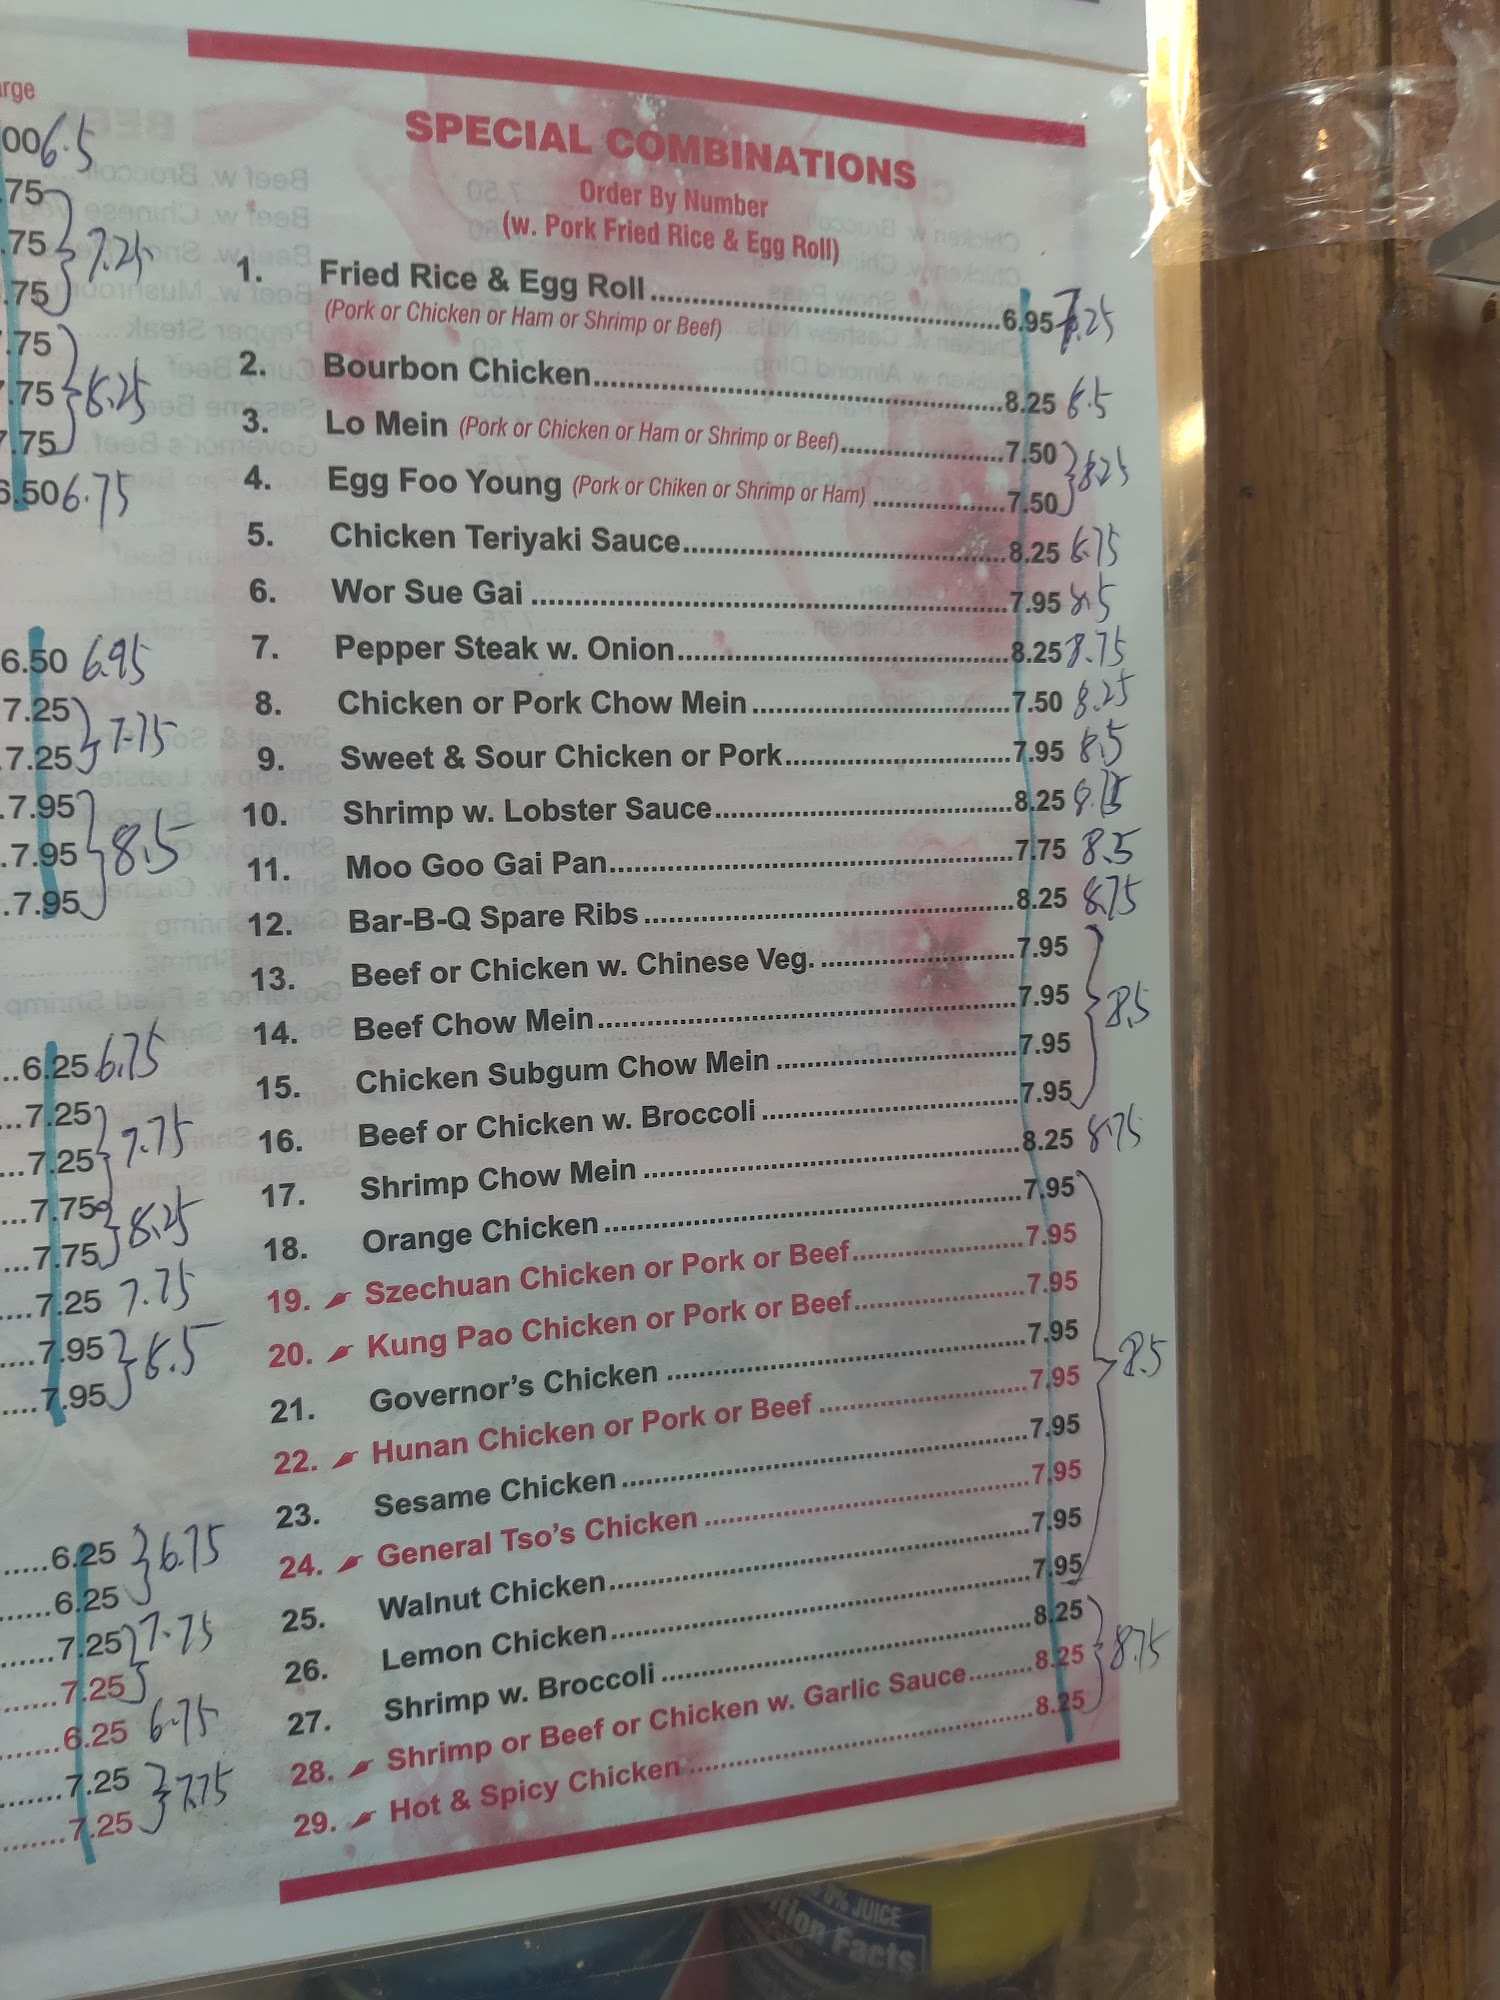 arge
.00 6.5
.75
.75 } 7.25
.75
7.75
7.75 } 8.25
7.75
6.50 6.75
6.50 6.95
7.25
.7.25 } 7.75
.7.95
.7.95 } 8.5
.7.95
..6.25 6.75
...7.25
...7.25 } 7.75
...7.75
...7.75 } 8.25
....7.25 7.75
....7.95
....7.95 } 8.5
.....6.25
......6.25 } 6.75
......7.25
......7.25 } 7.75
.......6.25 6.75
.......7.25
.......7.25 } 7.75
SPECIAL COMBINATIONS
Order By Number
(w. Pork Fried Rice & Egg Roll)
1. Fried Rice & Egg Roll 6.95 7.25
(Pork or Chicken or Ham or Shrimp or Beef)
2. Bourbon Chicken 8.25 8.5
3. Lo Mein (Pork or Chicken or Ham or Shrimp or Beef) 7.50
4. Egg Foo Young (Pork or Chiken or Shrimp or Ham) 7.50 } 8.25
5. Chicken Teriyaki Sauce 8.25 8.75
6. Wor Sue Gai 7.95 8.5
7. Pepper Steak w. Onion 8.25 8.75
8. Chicken or Pork Chow Mein 7.50 8.25
9. Sweet & Sour Chicken or Pork 7.95 8.5
10. Shrimp w. Lobster Sauce 8.25 8.75
11. Moo Goo Gai Pan 7.75 8.5
12. Bar-B-Q Spare Ribs 8.25 8.75
13. Beef or Chicken w. Chinese Veg. 7.95
14. Beef Chow Mein 7.95 } 8.5
15. Chicken Subgum Chow Mein 7.95
16. Beef or Chicken w. Broccoli 7.95
17. Shrimp Chow Mein 8.25 8.75
18. Orange Chicken 7.95
19. Szechuan Chicken or Pork or Beef 7.95
20. Kung Pao Chicken or Pork or Beef 7.95
21. Governor's Chicken 7.95 } 8.5
22. Hunan Chicken or Pork or Beef 7.95
23. Sesame Chicken 7.95
24. General Tso's Chicken 7.95
25. Walnut Chicken 7.95
26. Lemon Chicken 7.95
27. Shrimp w. Broccoli 8.25
28. Shrimp or Beef or Chicken w. Garlic Sauce 8.25 } 8.75
29. Hot & Spicy Chicken 8.25
0% JUICE
tion Facts